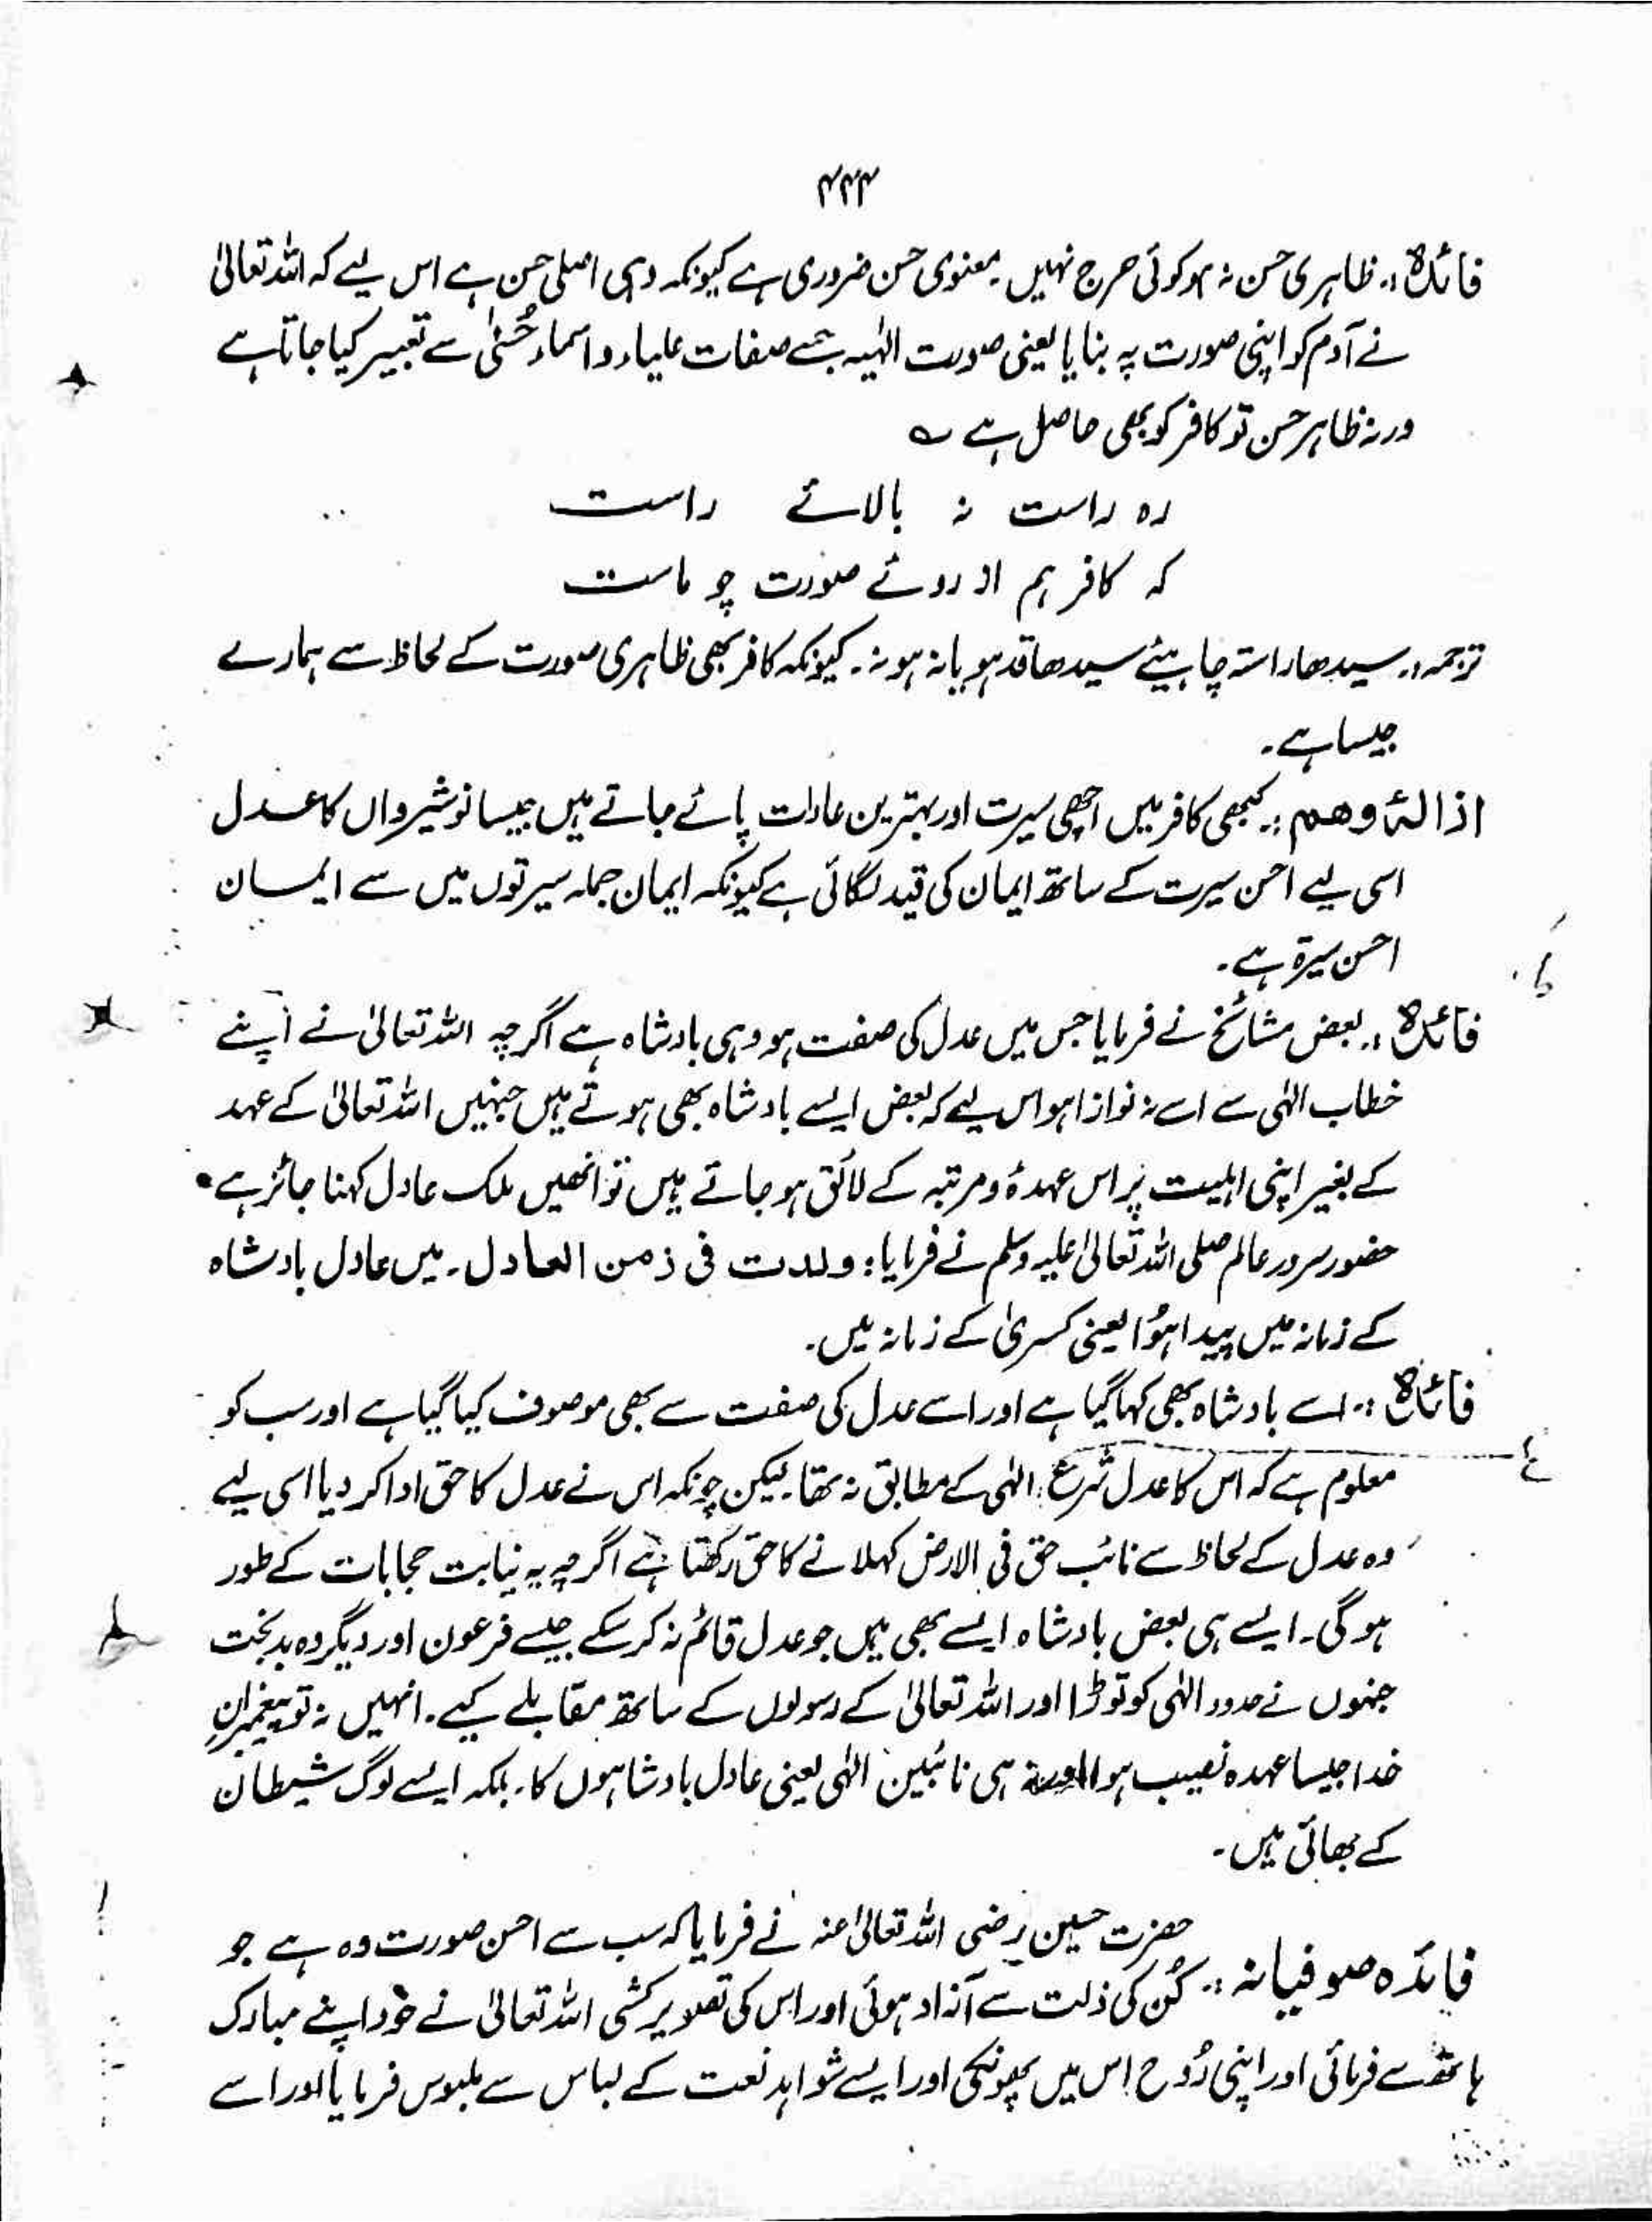 ۴۴۴
فائدہ :۔ ظاہری حسن نہ ہو کوئی حرج نہیں۔ معنوی حسن ضروری ہے کیونکہ وہی اصلی حسن ہے اس لیے کہ اللہ تعالیٰ
نے آدم کو اپنی صورت پہ بنایا یعنی صورت الٰہیہ جسے صفات علیاء و اسماء حُسنٰی سے تعبیر کیا جاتا ہے
ورنہ ظاہر حسن تو کافر کو بھی حاصل ہے ؎
رہ راست نہ بالائے راست
کہ کافر ہم از روئے صورت چو ماست
ترجمہ :۔ سیدھا راستہ چاہیئے سیدھا قد ہو یا نہ ہو نہ۔ کیونکہ کافر بھی ظاہری صورت کے لحاظ سے ہمارے
جیسا ہے۔
ازالۂ وھم :۔ کبھی کافر میں اچھی سیرت اور بہترین عادات پائے جاتے ہیں جیسا نوشیرواں کا عدل
اسی لیے احسن سیرت کے ساتھ ایمان کی قید لگائی ہے کیونکہ ایمان جملہ سیرتوں میں سے ایمان
احسن سیرۃ ہے۔
فائدہ :۔ بعض مشائخ نے فرمایا جس میں عدل کی صفت ہو وہی بادشاہ ہے اگرچہ اللہ تعالیٰ نے اپنے
خطاب الٰہی سے اسے نہ نوازا ہو اس لیے کہ بعض ایسے بادشاہ بھی ہوتے ہیں جنہیں اللہ تعالیٰ کے عہد
کے بغیر اپنی اہلیت پر اس عہدۂ و مرتبہ کے لائق ہو جاتے ہیں تو انھیں ملک عادل کہنا جائز ہے۔
حضور سرور عالم صلی اللہ تعالیٰ علیہ وسلم نے فرمایا : ولدت فی زمن العادل۔ میں عادل بادشاہ
کے زمانہ میں پیدا ہوُا یعنی کسریٰ کے زمانہ میں۔
فائدہ :۔ اسے بادشاہ بھی کہا گیا ہے اور اسے عدل کی صفت سے بھی موصوف کیا گیا ہے اور سب کو
معلوم ہے کہ اس کا عدل شرع الٰہی کے مطابق نہ تھا۔ لیکن چونکہ اس نے عدل کا حق ادا کر دیا اسی لیے
وہ عدل کے لحاظ سے نائب حق فی الارض کہلانے کا حق رکھتا ہے اگرچہ یہ نیابت حجابات کے طور
ہوگی۔ ایسے ہی بعض بادشاہ ایسے بھی ہیں جو عدل قائم نہ کر سکے جیسے فرعون اور دیگر وہ بدبخت
جنہوں نے حدود الٰہی کو توڑا اور اللہ تعالیٰ کے رسولوں کے ساتھ مقابلے کیے۔ انہیں نہ تو پیغمبرانِ
خدا جیسا عہدہ نصیب ہوا اور نہ ہی نائبین الٰہی یعنی عادل بادشاہوں کا۔ بلکہ ایسے لوگ شیطان
کے بھائی ہیں۔
حضرت حسین رضی اللہ تعالیٰ عنہ نے فرمایا کہ سب سے احسن صورت وہ ہے جو
فائدہ صوفیانہ :۔ کُن کی ذلت سے آزاد ہوئی اور اس کی تصویر کشی اللہ تعالیٰ نے خود اپنے مبارک
ہاتھ سے فرمائی اور اپنی رُوح اس میں پھونکی اور ایسے شواہد نعت کے لباس سے ملبوس فرمایا اور اسے